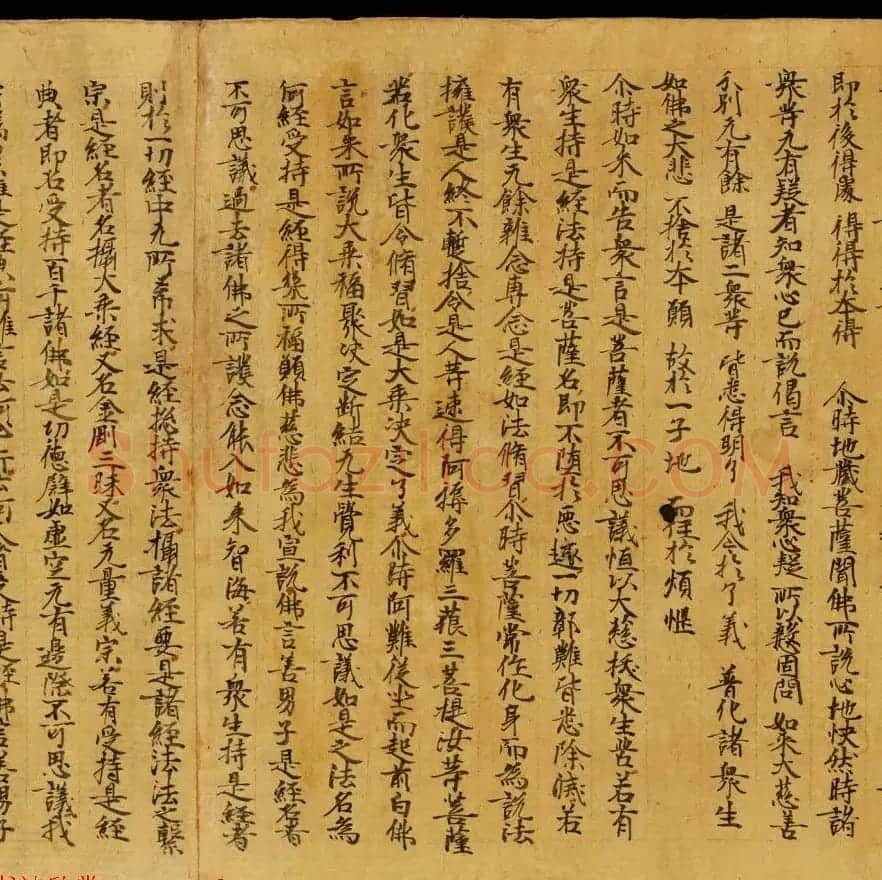 即於後得處 得得於本得 尒時地藏菩薩聞佛所說心地快然時諸
衆等无有疑者知衆心已而說偈言 我知衆心疑 所以慇固問 如來大慈善
分別无有餘 是諸二衆等 皆悉得明了 我今於了義 普化諸衆生
如佛之大悲 不捨於本願 故於一子地 而住於煩惱
尒時如來而告衆言是菩薩者不可思議恒以大慈拔衆生苦若有
衆生持是經法持是菩薩名即不墮於惡趣一切鄣難皆悉除滅若
有衆生无餘雜念專念是經如法脩習尒時菩薩常作化身而爲說法
擁護是人終不暫捨令是人等速得阿耨多羅三藐三菩提汝等菩薩
若化衆生皆令脩習如是大乘決定了義尒時阿難從坐而起前白佛
言如來所說大乘福聚決定斷結无生覺利不可思議如是之法名爲
何經受持是經得幾所福願佛慈悲爲我宣說佛言善男子是經名者
不可思議過去諸佛之所護念能入如來智海若有衆生持是經者
則於一切經中无所希求是經揔持衆法攝諸經要是諸經法法之繫
宗是經名者名攝大乘經又名金剛三昧又名无量義宗若有受持是經
典者即名受持百千諸佛如是功德譬如虛空无有邊際不可思議我
Shufazidian.COM